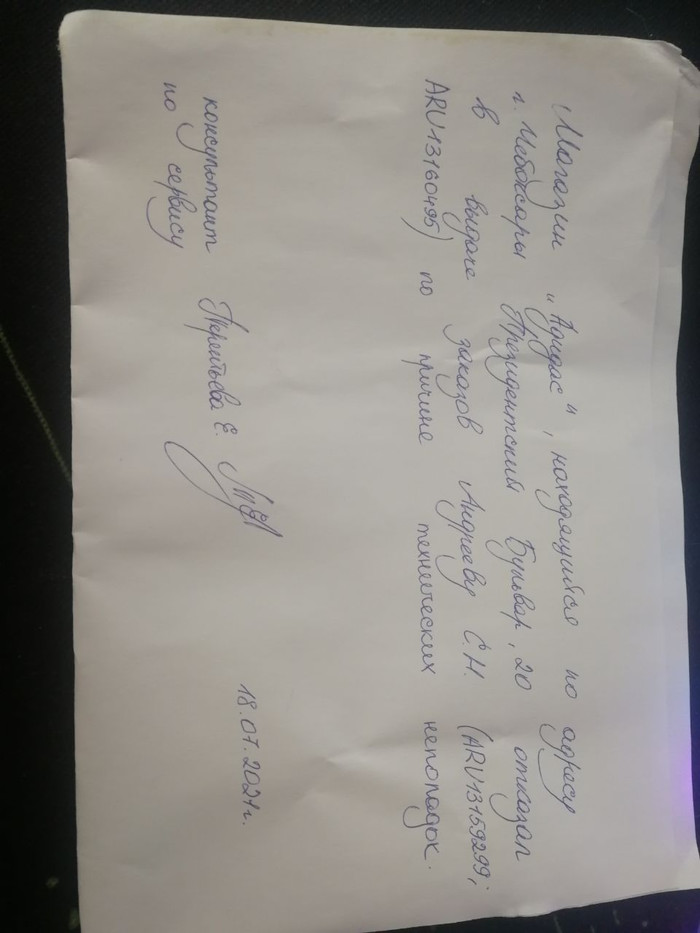 Магазин "Адидас", находящийся по адресу
г. Чебоксары Президентский Бульвар, 20 отказал
в выдаче заказов Андрееву С.Н. (ARU13159299;
ARU13160495) по причине технических неполадок.
консультант Терентьева Е. 18.07.2021г.
по сервису